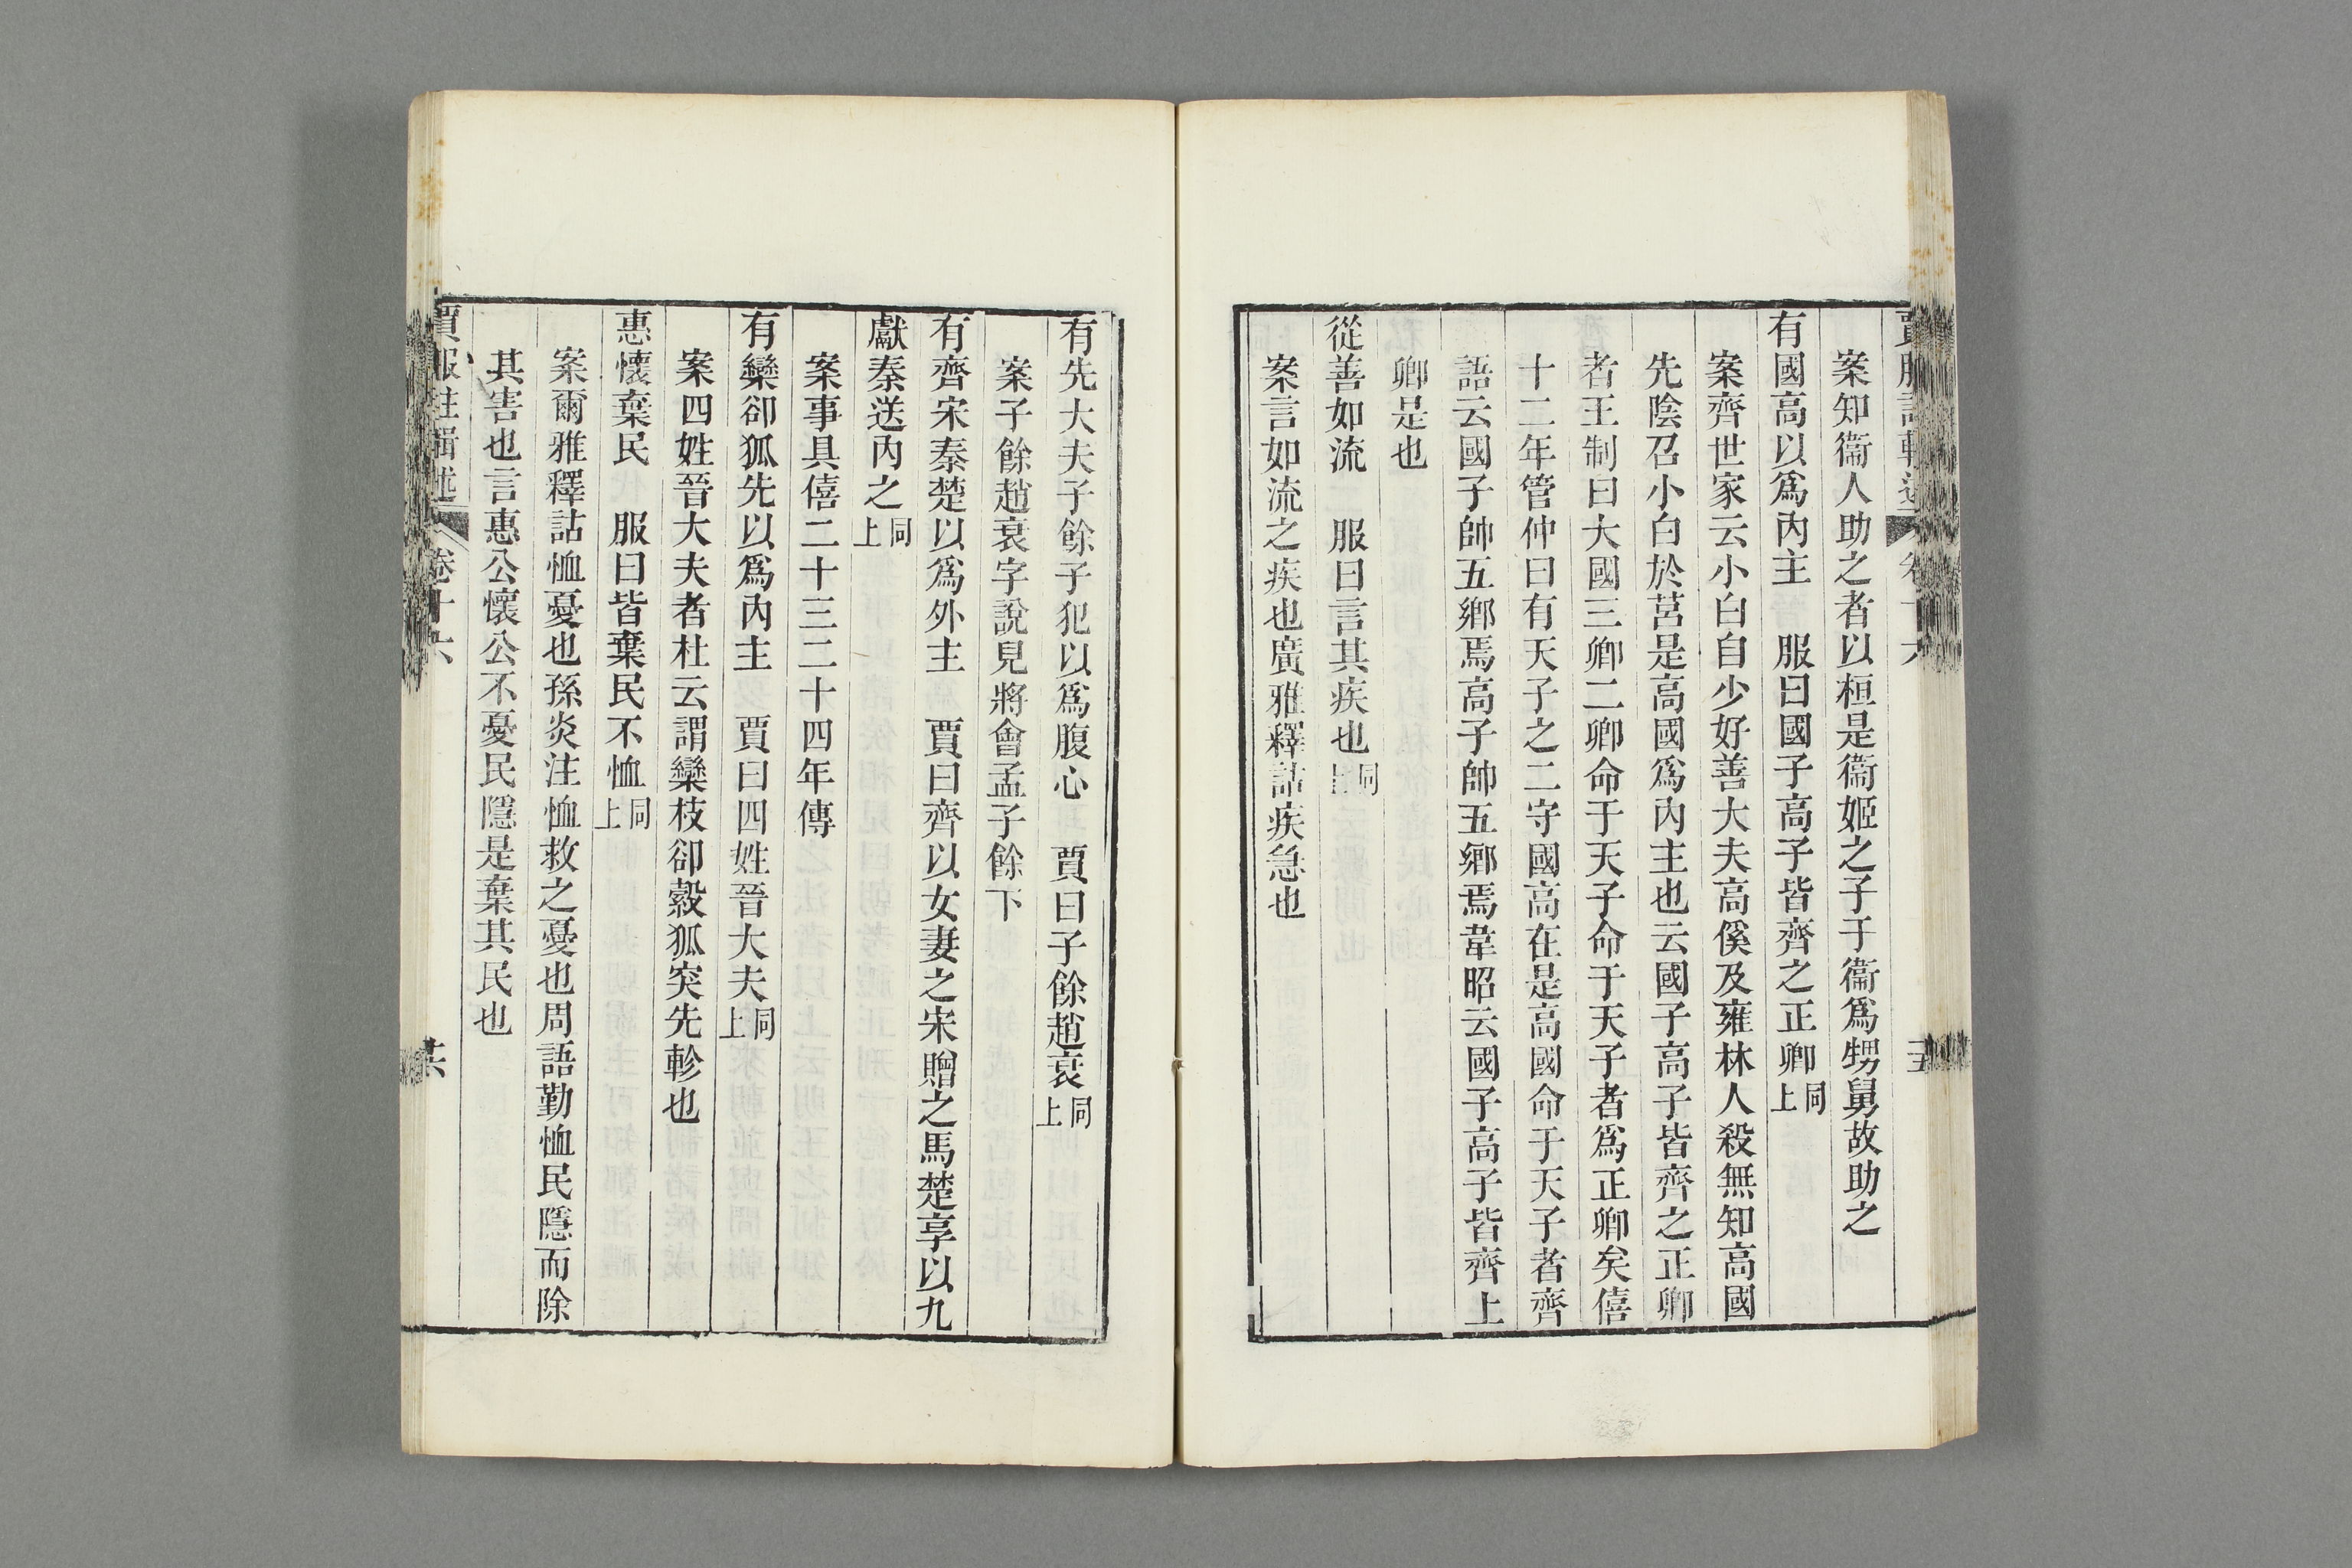 案知衞人助之者以桓是衞姬之子于衞爲甥舅故助之
有國高以爲內主　服曰國子高子皆齊之正卿同上
案齊世家云小白自少好善大夫高傒及雍林人殺無知高國
先陰召小白於莒是高國爲內主也云國子高子皆齊之正卿
者王制曰大國三卿二卿命于天子命于天子者爲正卿矣僖
十二年管仲曰有天子之二守國高在是高國命于天子者齊
語云國子帥五鄉焉高子帥五鄉焉韋昭云國子高子皆齊上
卿是也
從善如流　服曰言其疾也同
案言如流之疾也廣雅釋詁疾急也
有先大夫子餘子犯以爲腹心　賈曰子餘趙衰同上
案子餘趙衰字說見將會孟子餘下
有齊宋秦楚以爲外主　賈曰齊以女妻之宋贈之馬楚享以九
獻秦送內之同上
案事具僖二十三二十四年傳
有欒郤狐先以爲內主　賈曰四姓晉大夫同上
案四姓晉大夫者杜云謂欒枝郤縠狐突先軫也
惠懷棄民　服曰皆棄民不恤同上
案爾雅釋詁恤憂也孫炎注恤救之憂也周語勤恤民隱而除
其害也言惠公懷公不憂民隱是棄其民也
賈服註輯述　卷十六　共